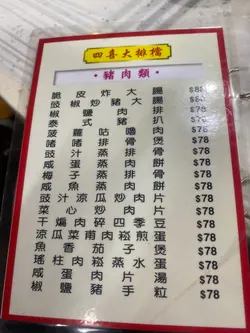 四喜大排檔
·豬肉類·
脆皮炸大腸 $88
豉椒炒豬大腸 $78
椒鹽肉排 $78
泰式豬扒 $78
菠蘿咕嚕肉 $78
啫啫排骨煲 $78
豉汁蒸排骨 $78
咸蛋蒸肉餅 $78
梅子蒸排骨 $78
咸魚蒸肉餅 $78
豉汁涼瓜炒肉片 $78
菜心炒肉片 $78
干煸肉碎四季豆 $78
涼瓜菜甫肉崧煎蛋 $78
魚香茄子煲 $78
瑤柱肉崧蒸水蛋 $78
咸蛋肉片湯 $78
椒鹽豬手粒 $78